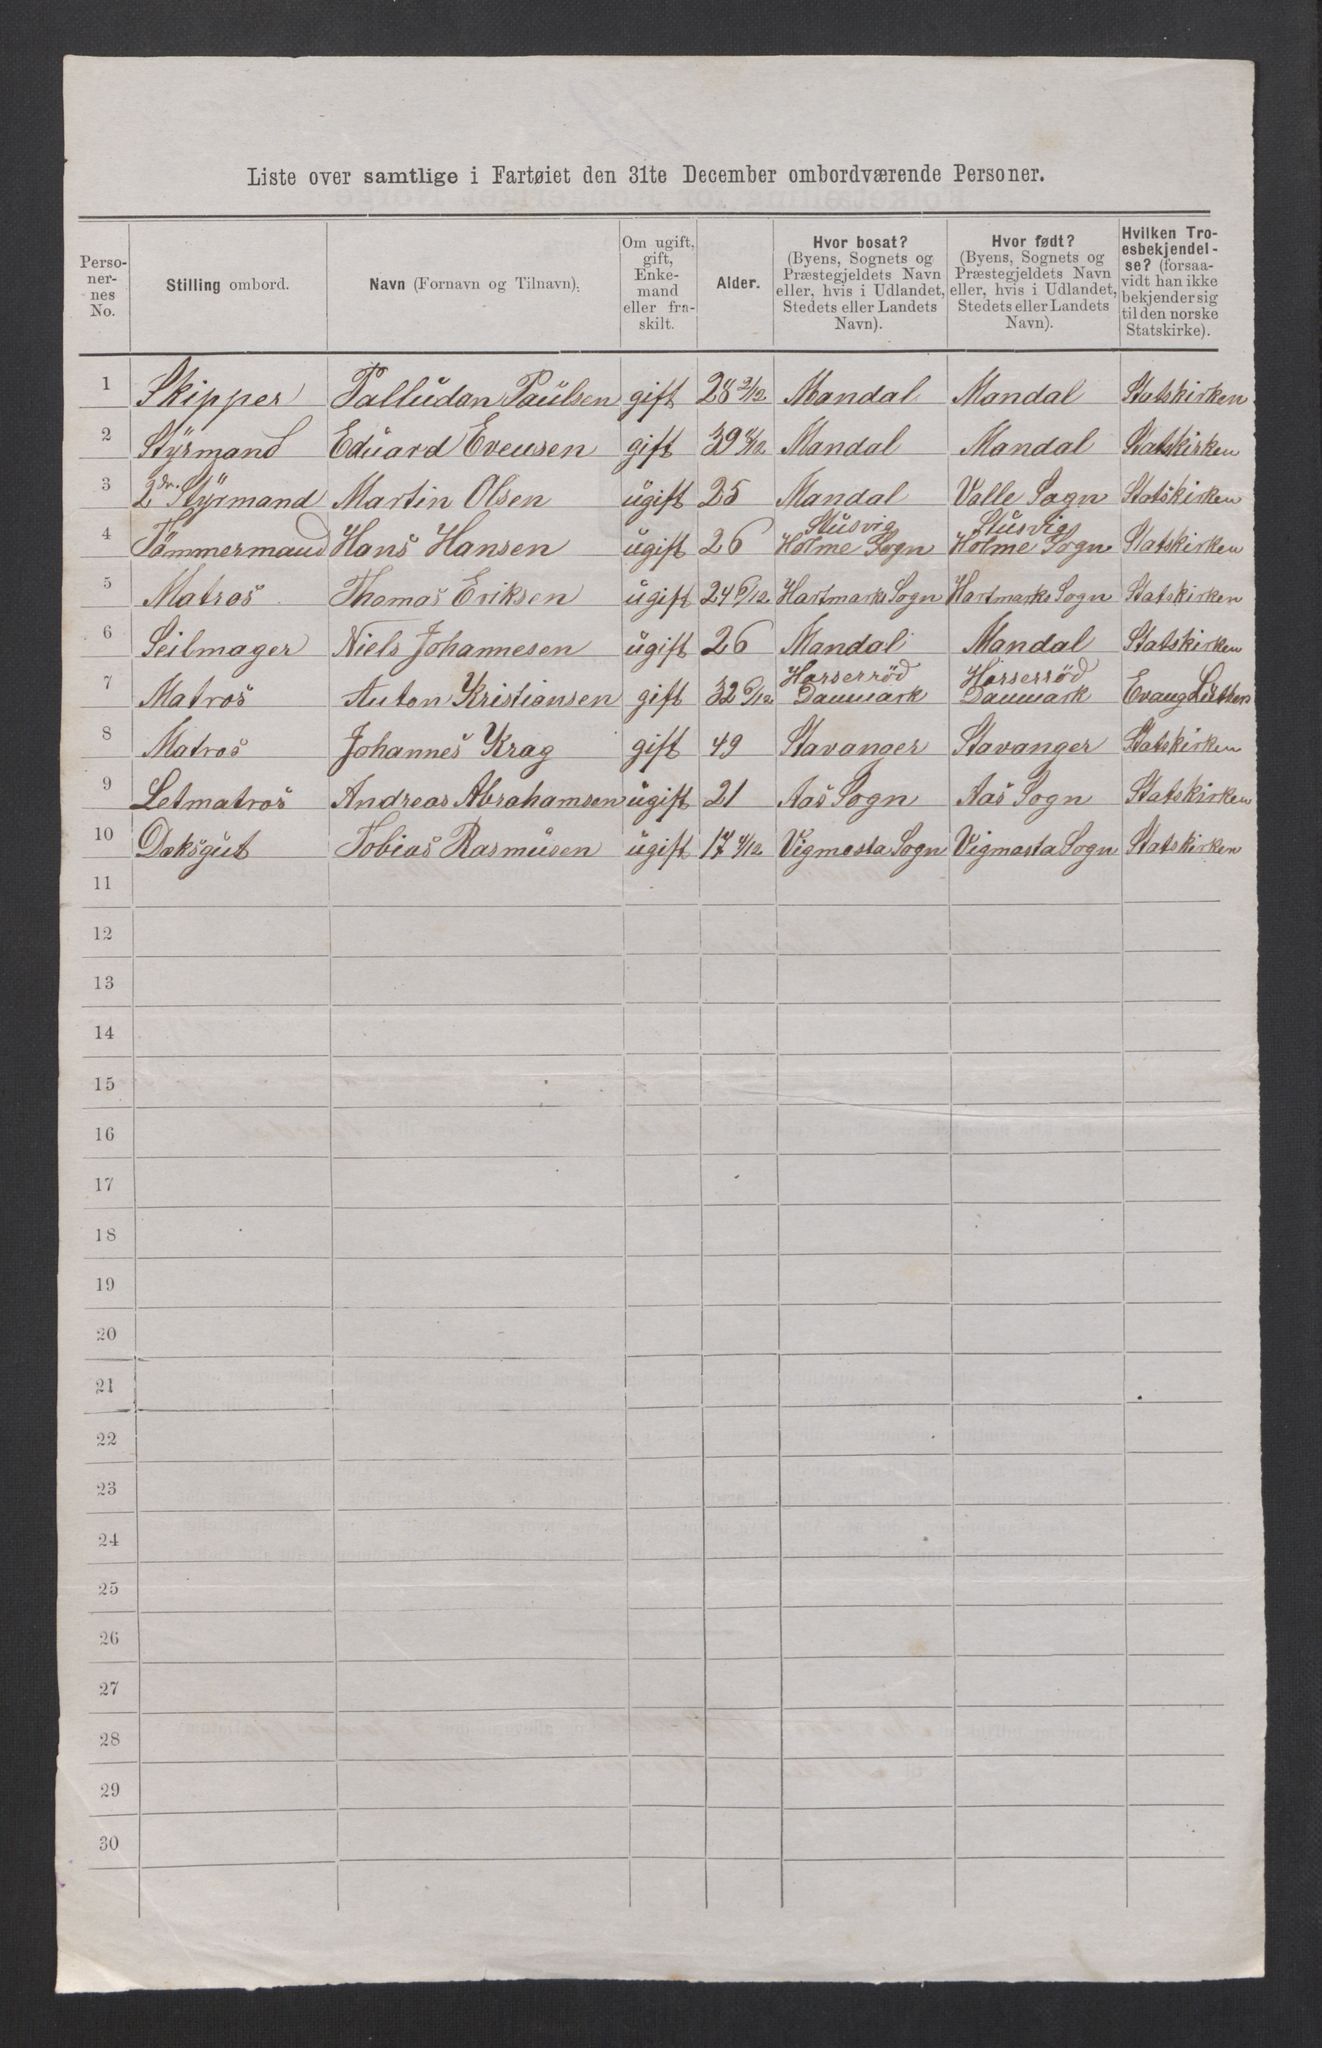 Liste over samtlige i Fartøiet den 31te December ombordværende Personer.
Perso-
ner-
nes
No.
Stilling ombord.
Navn (Fornavn og Tilnavn).
Om ugift,
gift,
Enke-
mand
eller fra-
skilt.
Alder.
Hvor bosat?
(Byens, Sognets og
Præstegjeldets Navn
eller, hvis i Udlandet,
Stedets eller Landets
Navn).
Hvor født?
(Byens, Sognets og
Præstegjeldets Navn
eller, hvis i Udlandet,
Stedets eller Landets
Navn).
Hvilken Tro-
esbekjendel-
se? (forsaa-
vidt han ikke
bekjender sig
til den norske
Statskirke).
1 Skipper Palludan Paulsen gift 28 2/12 Mandal Mandal Statskirken
2 Styrmand Eduard Evensen gift 39 Mandal Mandal Statskirken
3 2dr. Styrmand Martin Olsen ugift 25 Mandal Valle Sogn Statskirken
4 Tömmermand Hans Hansen ugift 26 Stusvig Holme Sogn Stusvig Holme Sogn Statskirken
5 Matros Thomas Eriksen ugift 24 6/12 Hartmarks Sogn Hartmarks Sogn Statskirken
6 Seilmager Niels Johannesen ugift 26 Mandal Mandal Statskirken
7 Matros Anton Kristiansen gift 32 6/12 Horserröd Danmark Horserröd Danmark Evang Luthers
8 Matros Johannes Krag gift 49 Stavanger Stavanger Statskirken
9 Letmatros Andreas Abrahamsen ugift 21 Aas Sogn Aas Sogn Statskirken
10 Dæksgut Tobias Rasmusen ugift 17 Vigmosta Sogn Vigmosta Sogn Statskirken
11
12
13
14
15
16
17
18
19
20
21
22
23
24
25
26
27
28
29
30